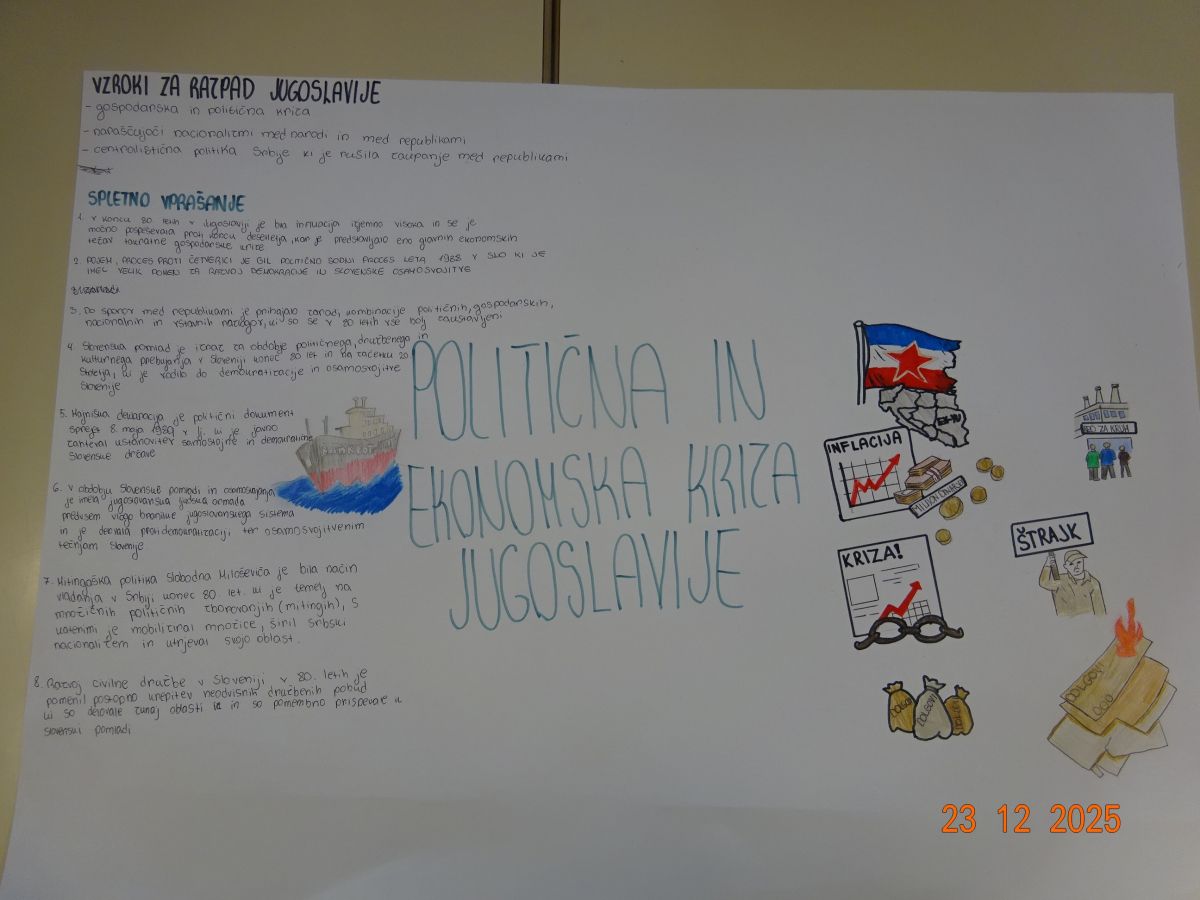 VZROKI ZA RAZPAD JUGOSLAVIJE
- gospodarska in politična kriza
- naraščujoči nacionalizmi med narodi in med republikami
- centralistična politika Srbije ki je rušila zaupanje med republikami
SPLETNO VPRAŠANJE
1. V koncu 80. letih v Jugoslaviji je bila inflacija izjemno visoka in se je
močno pospeševala proti koncu desetletja, kar je predstavljalo eno glavnih ekonomskih
težav takratne gospodarske krize
2. POJEM, PROCES PROTI ČETVERICI JE BIL POLITIČNO SODNI PROCES LETA 1988 V SLO KI JE
IMEL VELIK POMEN ZA RAZVOJ DEMOKRACIJE IN SLOVENSKE OSAMOSVOJITVE
3. Do sporov med republikami je prihajalo zaradi kombinacije političnih, gospodarskih,
nacionalnih in ustavnih razlogov, ki so se v 80 letih vse bolj zaustavljeni
4. Slovenska pomlad je izraz za obdobje političnega, družbenega in
kulturnega prebujanja v Sloveniji konec 80 let in na začetku 20
stoletja, ki je vodilo do demokratizacije in osamosvojitve
Slovenije
5. Majniška deklaracija je politični dokument
sprejet 8. maja 1989 v lj. ki je javno
zahteval ustanovitev samostojne in demokratične
slovenske države
6. V obdobju slovenske pomladi in osamosvajanja
je imela jugoslovanska ljudska armada
predvsem vlogo branilke jugoslovanskega sistema
in je delovala proti demokratizaciji ter osamosvojitvenim
težnjam Slovenije
7. Mitingaška politika Slobodna Miloševića je bila način
vladanja v Srbiji konec 80. let. ki je temelj na
množičnih političnih zborovanjih (mitingih), s
katerimi je mobiliziral množice, širil srbski
nacionalizem in utrjeval svojo oblast.
8. Razvoj civilne družbe v Sloveniji v 80. letih je
pomenil postopno krepitev neodvisnih družbenih pobud
ki so delovale zunaj oblasti in so pomembno prispevale k
slovenski pomladi
POLITIČNA IN
EKONOMSKA KRIZA
JUGOSLAVIJE
INFLACIJA
MILIJON DINARJEV
KRIZA!
DOLGOVI
DOLGOVI
DOLGOVI
RED ZA KRUH
ŠTRAJK
DOLGOVI
000
23 12 2025